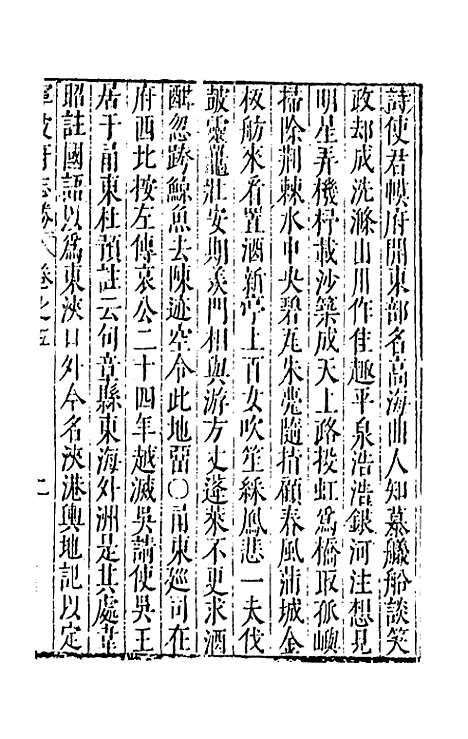 詩使君幙府開東部名高海曲人知慕艤船談笑
政却成洗滌山川作佳趣平泉浩浩銀河注想見
明星弄機杼載沙築成天上路投虹爲橋取孤嶼
掃除荆棘水中央碧瓦朱甍隨指顧春風滿城金
板舫來看置酒新亭上百女吹笙綵鳳悲一夫伐
鼓靈鼉壯安期羨門相與游方丈蓬萊不更求酒
酣忽跨鯨魚去陳迹空令此地留〇甬東廵司在
府西北按左傳哀公二十四年越滅吳請使吳王
居于甬東杜預註云句章縣東海外洲是其處韋
昭註國語以爲東浹口外今名浹港輿地記以定
寧波府志勝 卷之五 二